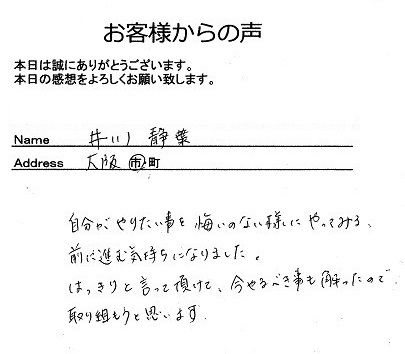 お客様からの声
本日は誠にありがとうございます。
本日の感想をよろしくお願い致します。
Name 井川 静葉
Address 大阪 市町
自分がやりたい事を悔いのない様にやってみる、
前に進む気持ちになりました。
はっきりと言って頂けて、今やるべき事も解ったので
取り組もうと思います.